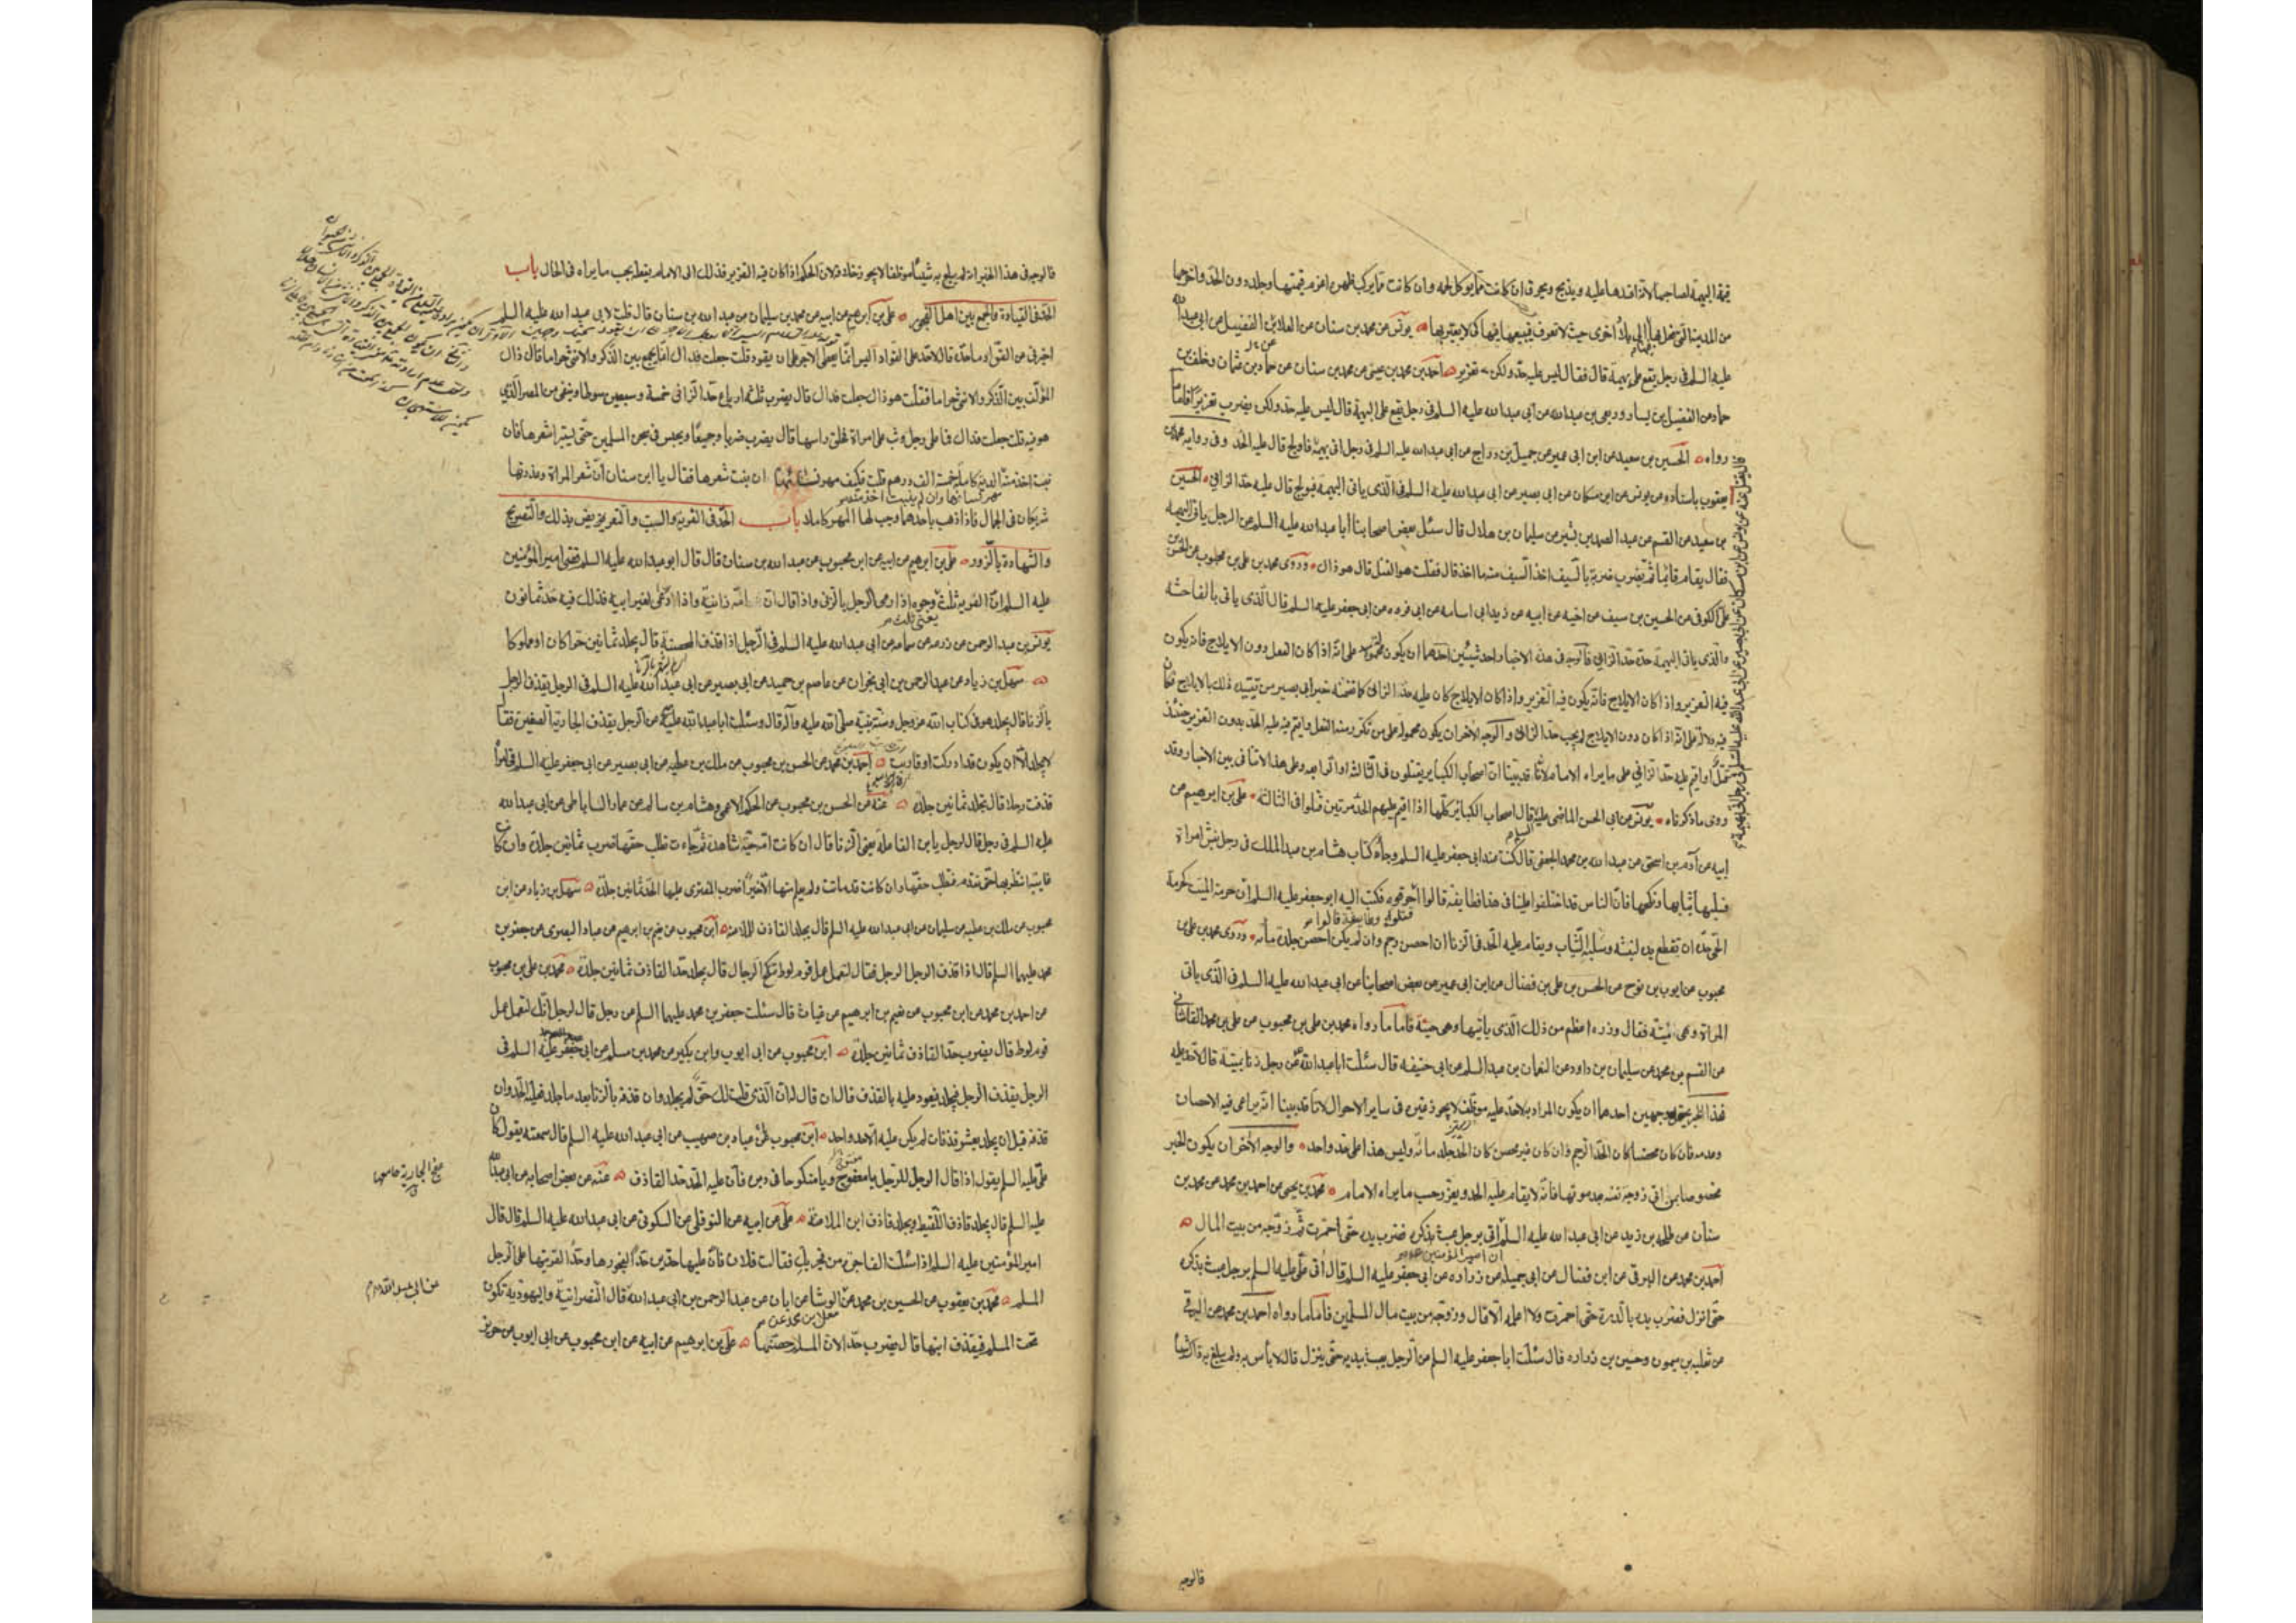 قيمة البهيمة لصاحبها لانه افسدها عليه ويذبح ويحرق ان كانت مما يوكل لحمه وان كانت مما يركب ظهره اغرم قيمتها وجلد دون الحد واخرجها
من المدينة التي فعل بها الى بلاد اخرى حيث لا تعرف فيبيعها فيها كيلا يعير بها يونس عن محمد بن سنان عن العلا بن الفضيل عن ابي عبد الله
عليه السلم في رجل يقع على بهيمة قال فقال ليس عليه حد ولكن تعزير احمد بن محمد بن عيسى عن محمد بن سنان عن حماد بن عثمان وخلف بن
حماد عن الفضيل بن يسار وربعي بن عبد الله عن ابي عبد الله عليه السلم في رجل يقع على البهيمة قال ليس عليه حد ولكن يضرب تعزيرا فاما ما
رواه الحسين بن سعيد عن ابن ابي عمير عن جميل بن دراج عن ابي عبد الله عليه السلم في رجل اتى بهيمة فاولج قال عليه الحد وفي رواية محمد بن
يعقوب باسناده عن يونس عن ابن مسكان عن ابي بصير عن ابي عبد الله عليه السلم في الذي ياتي البهيمة فيولج قال عليه حد الزاني الحسين
بن سعيد عن القسم عن عبد الصمد بن بشير عن سليمان بن هلال قال سئل بعض اصحابنا ابا عبد الله عليه السلم عن الرجل ياتي البهيمة
فقال يقام قائما ثم يضرب ضربة بالسيف اخذ السيف منه ما اخذ قال فقلت هو القتل قال هو ذاك وروى محمد بن علي بن محبوب عن الحسن بن
علي الكوفي عن الحسين بن سيف عن اخيه عن ابيه عن زيد ابي اسامه عن ابي فروه عن ابي جعفر عليه السلم قال الذي ياتي بالفاحشه
والذي ياتي البهيمة حده حد الزاني فالوجه في هذه الاخبار احد شيئين احدهما ان يكون محمولة على انه اذا كان الفعل دون الايلاج فانه يكون
فيه التعزير واذا كان الايلاج كان عليه حد الزاني كما تضمنه خبر ابي بصير من تقييد ذلك بالايلاج فكان
فيه دلالة على انه اذا كان دون الايلاج لم يجب حد الزاني والوجه الاخر ان يكون محمولة على من تكرر منه الفعل واقيم فيه عليه الحد بدون التعزير حينئذ
قتل او اقيم عليه حد الزاني على ما يراه الامام لانا قد بينا ان اصحاب الكباير يقتلون في الثالثة او الرابعة وعلى هذا لا تنافي بين الاخبار وقد
روى ما ذكرناه يونس عن ابي الحسن الماضي عليه السلام قال اصحاب الكباير كلها اذا اقيم عليهم الحد مرتين قتلوا في الثالثة علي بن ابرهيم عن
ابيه عن ادم بن اسحق عن عبد الله بن محمد الجعفي قال كنت عند ابي جعفر عليه السلم وجاءه كتاب هشام بن عبد الملك في رجل نبش امراة
فسلبها ثيابها ونكحها فان الناس قد اختلفوا علينا في هذا فطايفة قالوا اقتلوه وطايفة قالوا احرقوه فكتب اليه ابو جعفر عليه السلم ان حرمة الميت كحرمة
الحي حده ان تقطع يده لنبشه وسلبه الثياب ويقام عليه الحد في الزنا ان احصن رجم وان لم يكن احصن جلد مائه وروى محمد بن علي بن
محبوب عن ايوب بن نوح عن الحسن بن علي بن فضال عن ابن ابي عمير عن بعض اصحابنا عن ابي عبد الله عليه السلم في الذي ياتي
المراة وهي ميتة فقال وزره اعظم من ذلك الذي ياتيها وهي حية فاما ما رواه محمد بن علي بن محبوب عن علي بن محمد القاشاني
عن القسم بن محمد عن سليمان بن داود عن النعمان بن عبد السلم عن ابي حنيفه قال سئلت ابا عبد الله عن رجل زنا بميتة قال لا حد عليه
فهذا الخبر يحتمل وجهين احدهما ان يكون المراد بلا حد عليه موظف لا يجوز غيره في ساير الاحوال لانا قد بينا انه يراعى فيه الاحصان
وعدمه فان كان محصنا كان الحد الرجم وان كان غير محصن كان الحد جلد مائه وليس هذا على حد واحد والوجه الاخر ان يكون الخبر
مخصوصا بمن اتى زوجة نفسه بعد موتها فانه لا يقام عليه الحد ويعزر حسب ما يراه الامام محمد بن يحيى عن احمد بن محمد عن محمد بن
سنان عن طلحه بن زيد عن ابي عبد الله عليه السلم ان امير المؤمنين عليه السلم اتى برجل عبث بذكره فضرب يده حتى احمرت ثم زوجه من بيت المال
احمد بن محمد عن البرقي عن ابن فضال عن ابي جميله عن زراره عن ابي جعفر عليه السلم قال اتى علي عليه السلم برجل عبث بذكره
حتى انزل فضرب يده بالدرة حتى احمرت ولا اعلمه الا قال وزوجه من بيت مال المسلمين فاما ما رواه احمد بن محمد عن البرقي
عن ثعلبه بن ميمون وحسين بن زراره قال سئلت ابا جعفر عليه السلم عن الرجل يعبث بيديه حتى ينزل قال لا باس به ولم يبلغ به ذاك شيئا
فالوجه
فالوجه في هذا الخبر انه لم يبلغ به شيئا موظفا لا يجوز خلافه لان الحكم اذا كان فيه التعزير فذلك الى الامام يفعله بحسب ما يراه في الحال باب
الحد في القيادة والجمع بين اهل الفجور علي بن ابرهيم عن ابيه عن محمد بن سليمان عن عبد الله بن سنان قال قلت لابي عبد الله عليه السلم
اخبرني عن القواد ما حده قال لا حد على القواد اليس انما يعطى الاجر على ان يقود قلت جعلت فداك انما يجمع بين الذكر والانثى حراما قال ذاك
المؤلف بين الذكر والانثى حراما فقلت هو ذاك جعلت فداك قال يضرب ثلثة ارباع حد الزاني خمسة وسبعين سوطا وينفى من المصر الذي
هو فيه قلت جعلت فداك فما على رجل وثب على امراة فحلق راسها قال يضرب ضربا وجيعا ويحبس في سجن المسلمين حتى يستبرا شعرها فان
نبت اخذ منه مهر نسائها وان لم ينبت اخذ منه الدية كاملة خمسة الف درهم قلت فكيف مهر نسائها ان نبت شعرها فقال يا ابن سنان ان شعر المراة وعذرتها
شريكان في الجمال فاذا ذهب باحدهما وجب لها المهر كاملا باب الحد في الفرية والسب والتعريض بذلك والتصريح
والشهادة بالزور علي بن ابرهيم عن ابيه عن ابن محبوب عن عبد الله بن سنان قال قال ابو عبد الله عليه السلم قضى امير المؤمنين
عليه السلم ان الفرية ثلث يعني ثلث وجوه اذا رمى الرجل بالزنى واذا قال ان امه زانية واذا ادعى لغير ابيه فذلك فيه حد ثمانون
يونس بن عبد الرحمن عن زرعه عن سماعه عن ابي عبد الله عليه السلم في الرجل اذا قذف المحصنة قال يجلد ثمانين حرا كان او مملوكا
سهل بن زياد عن عبد الرحمن بن ابي نجران عن عاصم بن حميد عن ابي بصير عن ابي عبد الله عليه السلم في الرجل يقذف الرجل
بالزنا قال يجلد هو في كتاب الله عز وجل وسنة نبيه صلى الله عليه وآله قال وسئلت ابا عبد الله عليه السلم عن الرجل يقذف الجارية الصغيرة فقال
لا يجلد الا ان يكون قد ادركت او قاربت احمد بن محمد عن الحسن بن محبوب عن ملك بن عطيه عن ابي بصير عن ابي جعفر عليه السلم في امراة
قذفت رجلا قال تجلد ثمانين جلدة عنه عن الحسن بن محبوب عن الحكم الاعمى وهشام بن سالم عن عمار الساباطي عن ابي عبد الله
عليه السلم في رجل قال لرجل يا بن الفاعلة يعني الزنا قال ان كانت امه حية شاهدة ثم جاءت تطلب حقها ضرب ثمانين جلدة وان كانت
غايبة انتظر بها حتى تقدم فتطلب حقها وان كانت قد ماتت ولم يعلم منها الا خيرا ضرب المفترى عليها الحد ثمانين جلدة سهل بن زياد عن ابن
محبوب عن ملك بن عطيه عن سليمان عن ابي عبد الله عليه السلم قال يجلد القاذف للملاعنة ابن محبوب عن نعيم بن ابرهيم عن عباد البصرى عن جعفر بن
محمد عليهما السلم قال اذا قذف الرجل الرجل فقال لتعمل عمل قوم لوط تنكح الرجال قال يجلد حد القاذف ثمانين جلدة محمد بن علي بن محبوب
عن احمد بن محمد عن ابن محبوب عن نعيم بن ابرهيم عن غياث قال سئلت جعفر بن محمد عليهما السلم عن رجل قال لرجل انك لتعمل عمل
قوم لوط قال يضرب حد القاذف ثمانين جلدة ابن محبوب عن ابي ايوب وابن بكير عن محمد بن مسلم عن ابي جعفر عليه السلم في
الرجل يقذف الرجل فيجلد فيعود عليه بالقذف قال ان قال له ان الذي قلت لك حق لم يجلد وان قذفه بالزنا بعد ما جلد فعليه الحد وان
قذفه قبل ان يجلد بعشر قذفات لم يكن عليه الا حد واحد ابن محبوب عن عباد بن صهيب عن ابي عبد الله عليه السلم قال سمعته يقول كان
علي عليه السلم يقول اذا قال الرجل للرجل يا معفوج ويا منكوحا في دبره فان عليه الحد حد القاذف عنه عن بعض اصحابه عن ابي عبد الله
عليه السلم قال يجلد قاذف اللقيط ويجلد قاذف ابن الملاعنة علي عن ابيه عن النوفلي عن السكوني عن ابي عبد الله عليه السلم قال قال
امير المؤمنين عليه السلم اذا سئلت الفاجرة من فجر بك فقالت فلان فان عليها حدين حدا لفجورها وحدا لفريتها على الرجل
المسلم محمد بن يعقوب عن الحسين بن محمد عن معلى بن محمد عن الوشا عن ابان عن عبد الرحمن بن ابي عبد الله قال النصرانية واليهودية تكون
تحت المسلم فيقذف ابنها قال يضرب حدا لان المسلم حصنها علي بن ابرهيم عن ابيه عن ابن محبوب عن ابي ايوب عن حريز